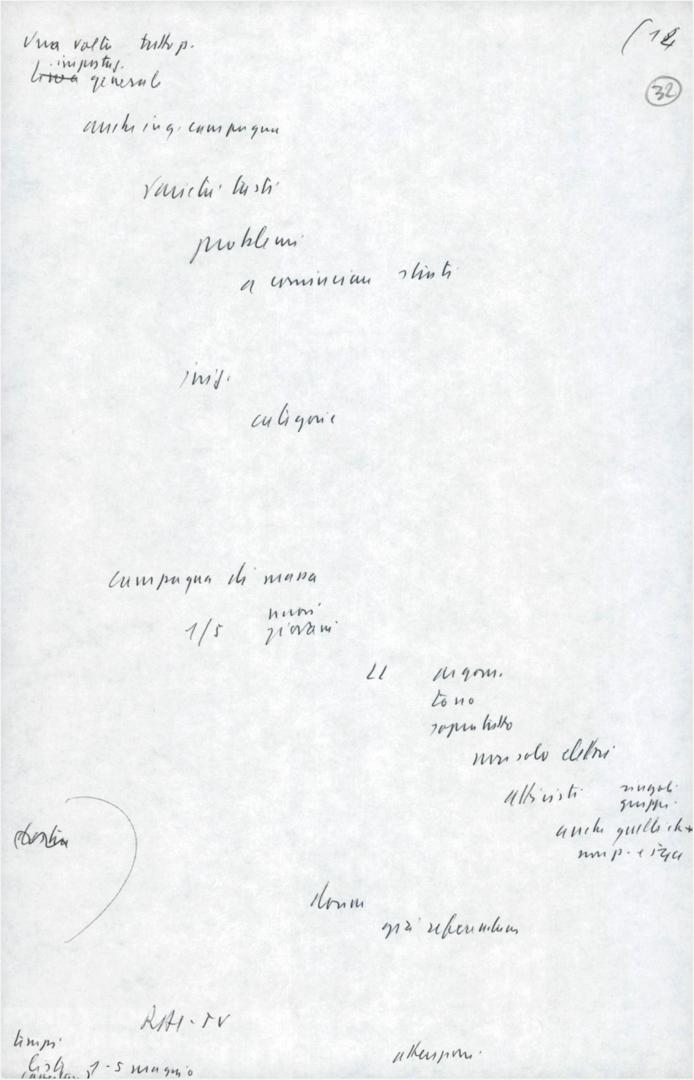 (12
32
Una volta tutto p.
impostaz.
linea generale
anche in q. campagna
varietà tasti
problemi
a cominciare
iniz.
categorie
campagna di massa
nuovi
1/5 giovani
argom.
tono
soprattutto
non solo elettori
attivisti singoli
gruppi
anche quelli che
non p.
donne
già referendum
RAI-TV
tempi
liste 1-5 maggio
attenzione